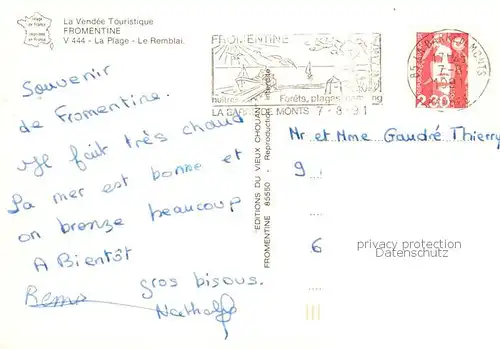 La Vendée Touristique
FROMENTINE
V 444 - La Plage - Le Remblai.
Souvenir
de Fromentine.
Il fait très chaud
La mer est bonne et
on bronze beaucoup
A Bientôt
gros bisous.
Nathaly
EDITIONS DU VIEUX CHOUAN - Reproduction interdite
FROMENTINE 85550 -
FROMENTINE
Forêts, plages
LA BARRE DE MONTS 7-8-91
85 LA BARRE DE MONTS
2,30
Mr et Mme Gaudré Thierry
9
6
privacy protection
Datenschutz